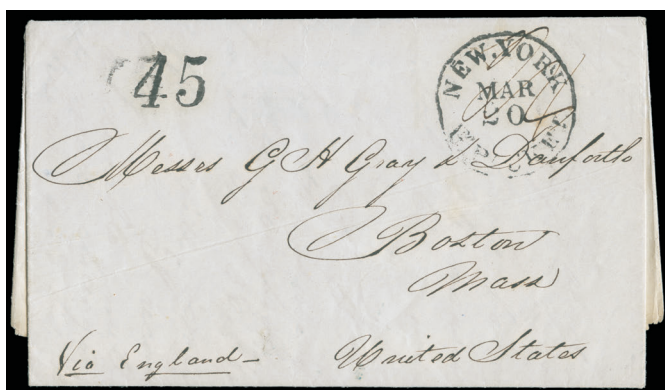 45
NEW.YORK
MAR
20
Messrs G H Gray & Danforth
Boston
Mass
Via England -
United States